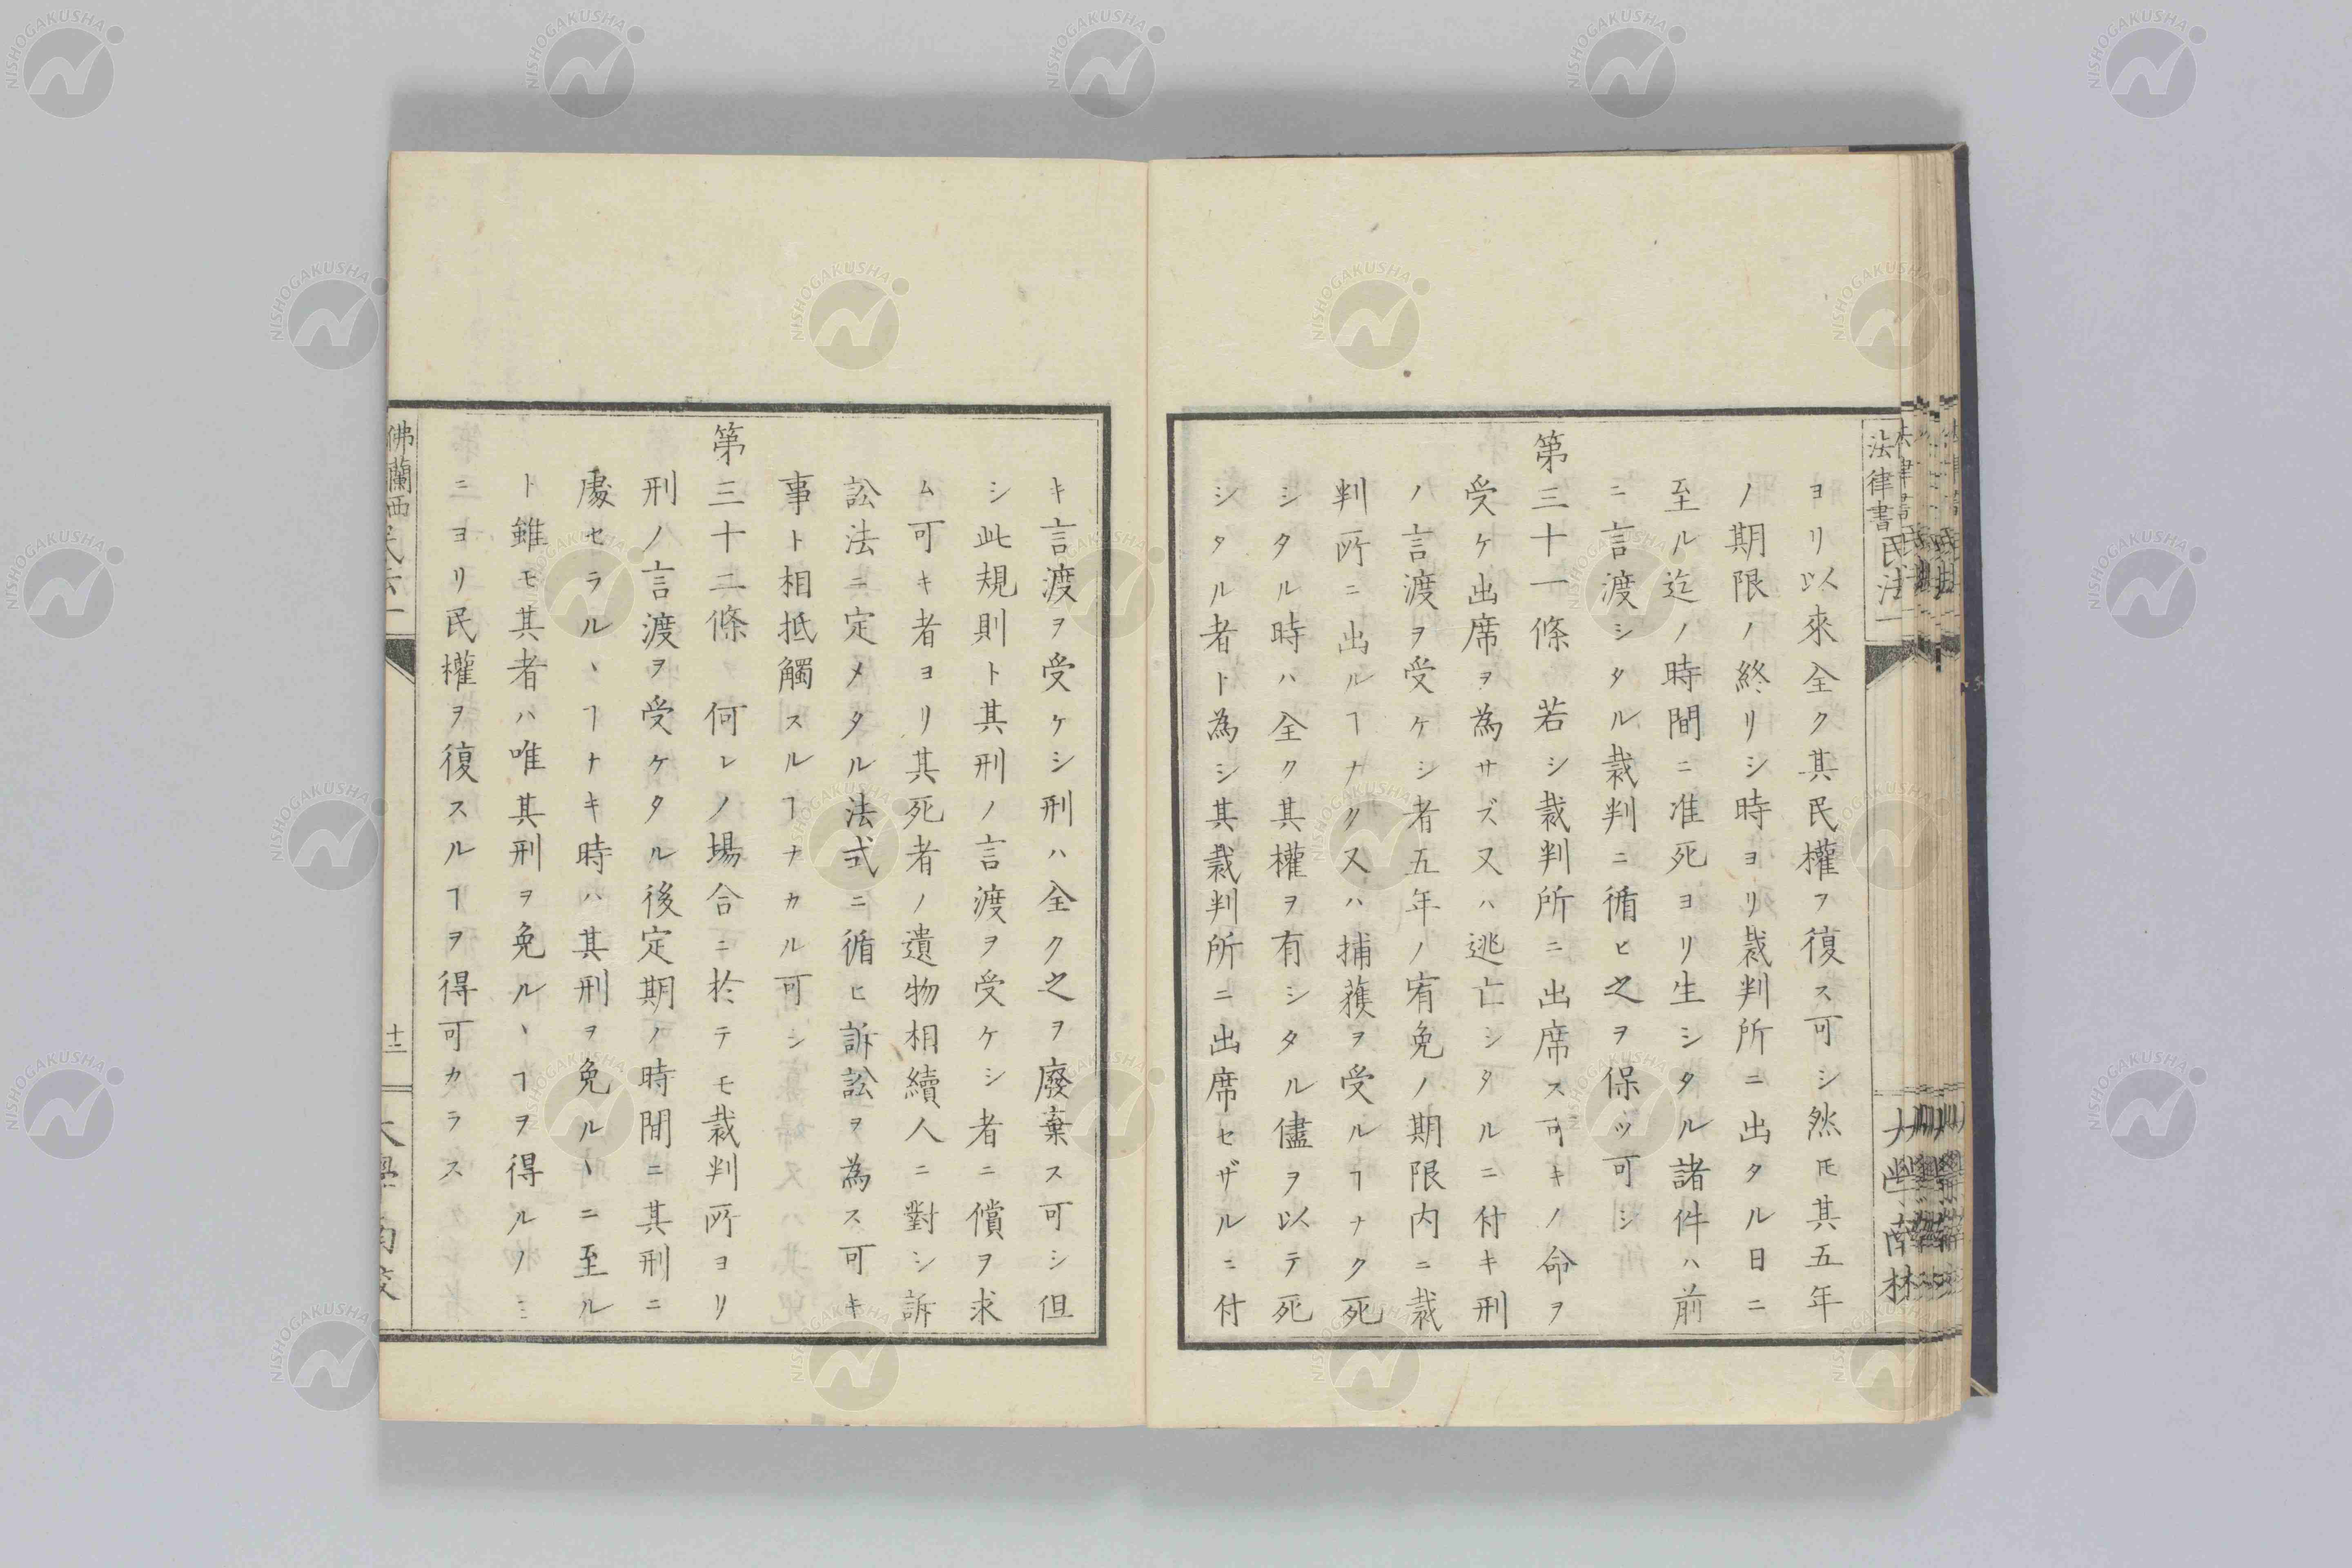 法律書
民法一
ヨリ以來全ク其民權ヲ復ス可シ然𪜈其五年
ノ期限ノ終リシ時ヨリ裁判所ニ出タル日ニ
至ル迄ノ時間ニ准死ヨリ生シタル諸件ハ前
ニ言渡シタル裁判ニ循ヒ之ヲ保ツ可シ
第三十一條 若シ裁判所ニ出席ス可キノ命ヲ
受ケ出席ヲ為サズ又ハ逃亡シタルニ付キ刑
ノ言渡ヲ受ケシ者五年ノ宥免ノ期限内ニ裁
判所ニ出ルヿナク又ハ捕獲ヲ受ルヿナク死
シタル時ハ全ク其權ヲ有シタル儘ヲ以テ死
シタル者ト為シ其裁判所ニ出席セザルニ付
キ言渡ヲ受ケシ刑ハ全ク之ヲ廢棄ス可シ但
シ此規則ト其刑ノ言渡ヲ受ケシ者ニ償ヲ求
ム可キ者ヨリ其死者ノ遺物相續人ニ對シ訴
訟法ニ定メタル法式ニ循ヒ訴訟ヲ為ス可キ
事ト相抵觸スルヿナカル可シ
第三十二條 何レノ場合ニ於テモ裁判所ヨリ
刑ノ言渡ヲ受ケタル後定期ノ時間ニ其刑ニ
處セラルヽヿナキ時ハ其刑ヲ免ルヽニ至ル
ト雖モ其者ハ唯其刑ヲ免ルヽヿヲ得ルノミ
ニヨリ民權ヲ復スルヿヲ得可カラス
佛蘭西
十二
NISHOGAKUSHA